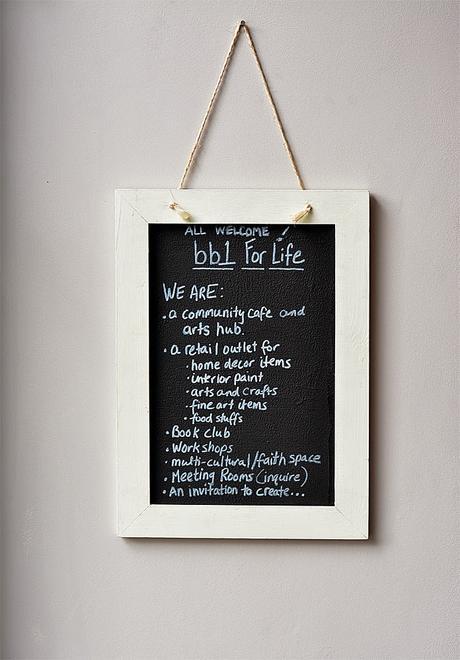 ALL WELCOME !
bb1 For Life
WE ARE:
• a community cafe and
arts hub.
• a retail outlet for
• home decor items
• interior paint
• arts and crafts
• fine art items
• food stuffs
• Book club
• Workshops
• multi-cultural/faith space
• Meeting Rooms (inquire)
• An invitation to create...